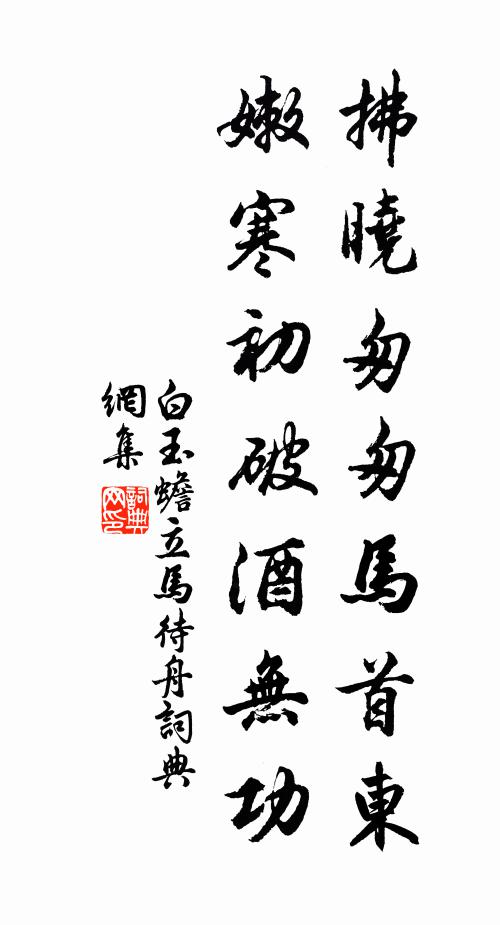 拂曉匆匆馬首東
嫩寒初破酒無功
白玉蟾立馬待舟詞典
網集
詞典網印